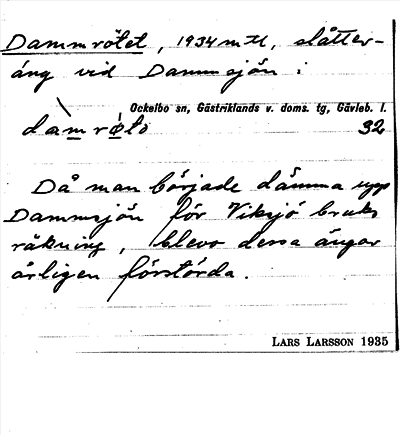 Dammrötet, 1934 m tl, slåtter-
äng vid Dammsjön i
Ockelbo sn, Gästriklands v. doms. tg, Gävleb. l.
32
Då man började dämma upp
Dammsjön för Viksjö bruks
räkning, blevo dessa ängar
årligen förstörda.
LARS LARSSON 1935